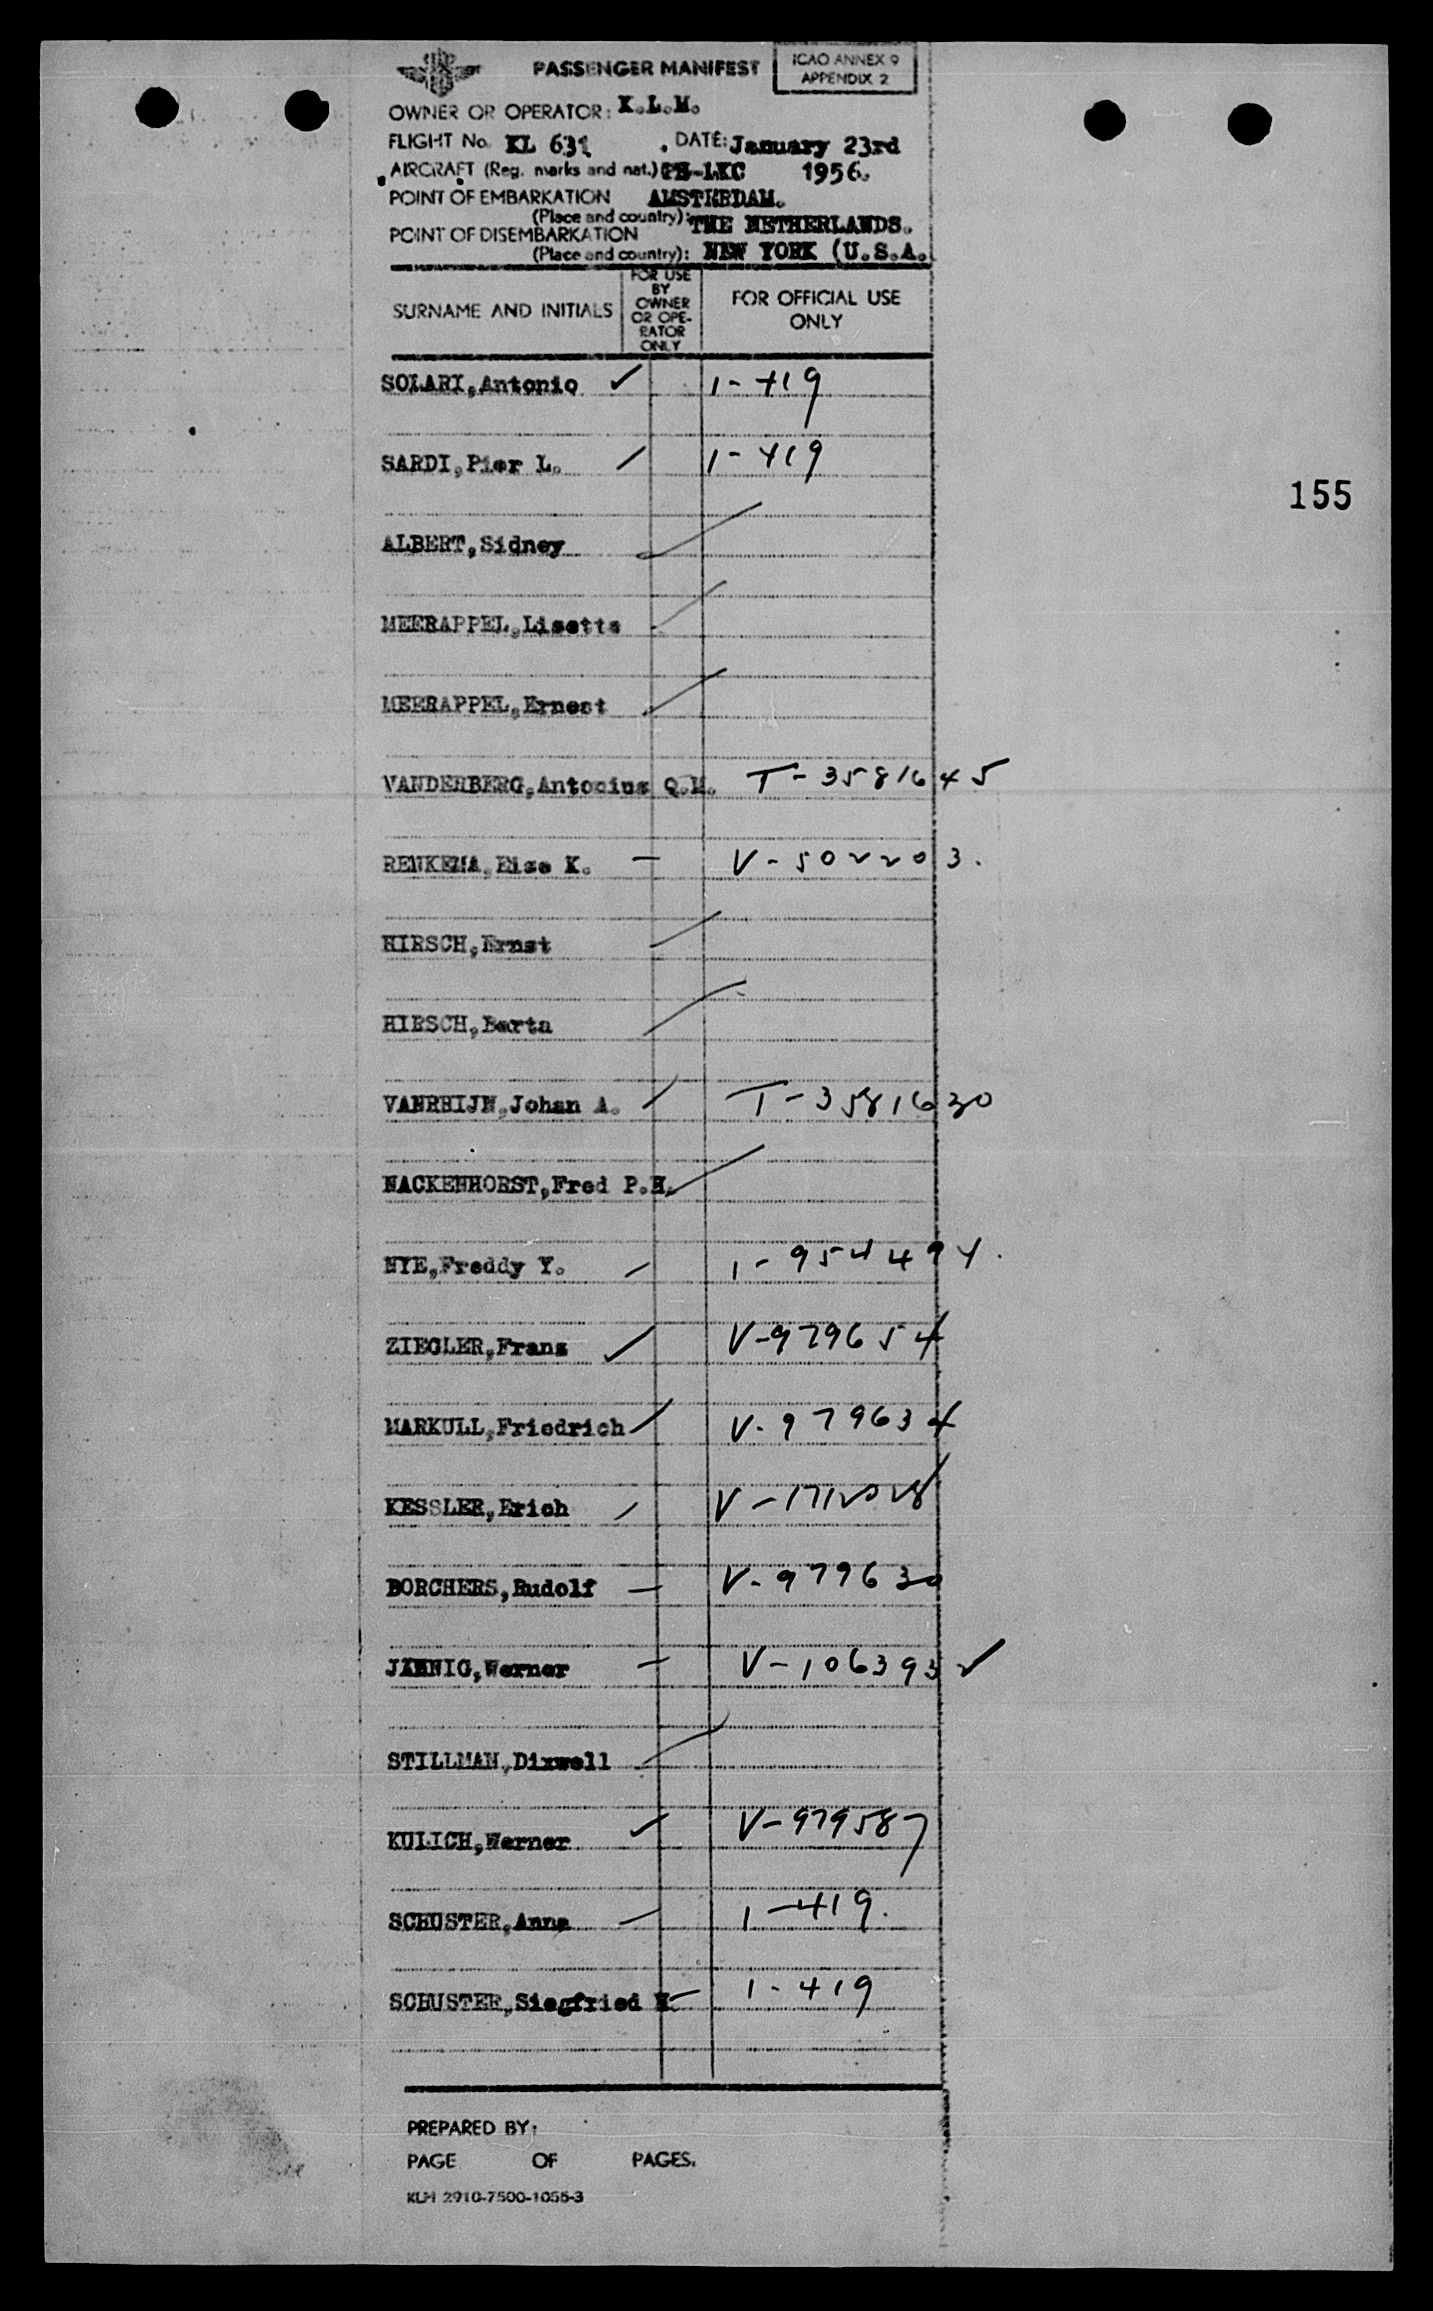 PASSENGER MANIFEST
ICAO ANNEX 9
APPENDIX 2
OWNER OR OPERATOR: K.L.M.
FLIGHT No. KL 631 . DATE: January 23rd
AIRCRAFT (Reg. marks and nat.) PH-LKC 1956.
POINT OF EMBARKATION AMSTERDAM.
(Place and country): THE NETHERLANDS.
POINT OF DISEMBARKATION
(Place and country): NEW YORK (U.S.A.
SURNAME AND INITIALS
FOR USE BY OWNER OR OPE-RATOR ONLY
FOR OFFICIAL USE ONLY
SOLARI,Antonio ✓ 1-419
SARDI,Pier L. / 1-419
155
ALBERT,Sidney
MEERAPPEL,Lisette
MEERAPPEL,Ernest
VANDENBERG,Antonius Q.M. T-3581645
RENKEMA,Eise K. — V-502203.
HIRSCH,Ernst
HIRSCH,Berta
VANRHIJN,Johan A. / T-3581630
NACKENHORST,Fred P.H.
NYE,Freddy Y. 1-954494.
ZIEGLER,Frans ✓ V-979654
MARKULL,Friedrich / V-979634
KESSLER,Erich / V-1712028
BORCHERS,Rudolf — V-979630
JAENIG,Werner — V-106393 ✓
STILLMAN,Dixwell
KULICH,Werner ✓ V-979587
SCHUSTER,Anna — 1-419.
SCHUSTER,Siegfried H. 1-419
PREPARED BY:
PAGE OF PAGES.
KLM 2910-7500-1055-3